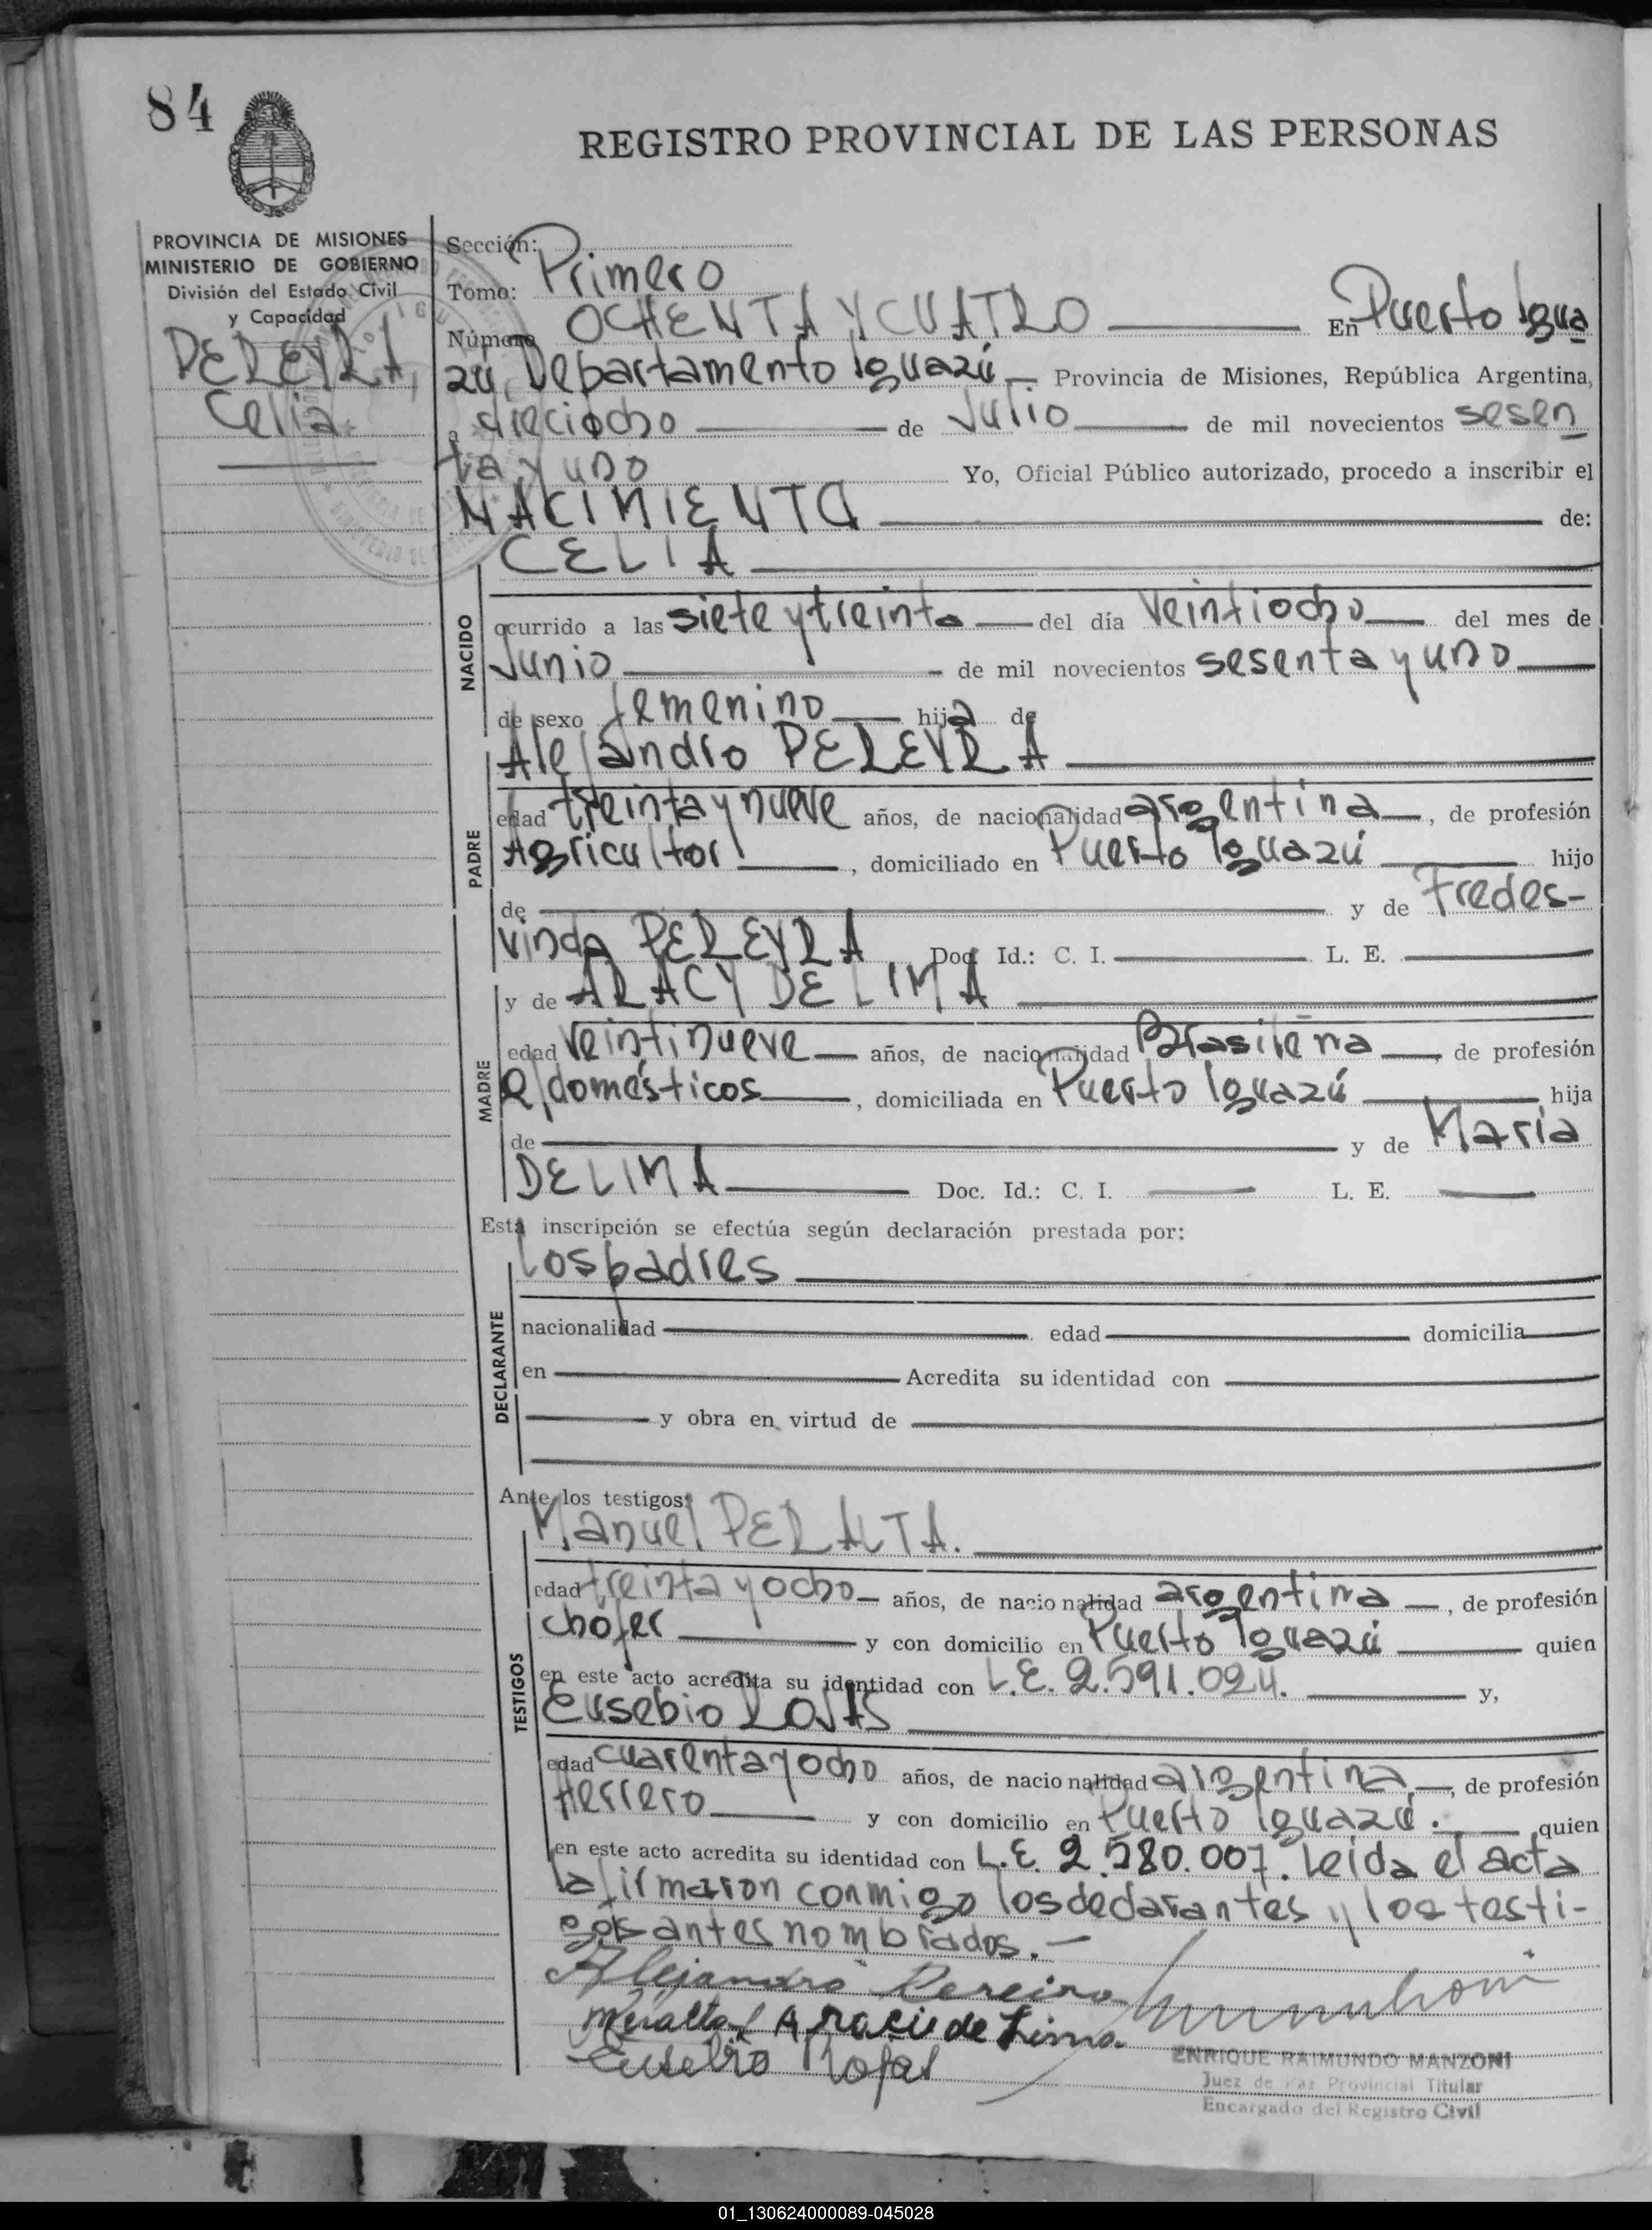 84
REGISTRO PROVINCIAL DE LAS PERSONAS
PROVINCIA DE MISIONES
MINISTERIO DE GOBIERNO
División del Estado Civil
y Capacidad
PEREYRA,
Celia
Sección:
Tomo: Primero
Número OCHENTA Y CUATRO En Puerto Igua
zú, Departamento Iguazú Provincia de Misiones, República Argentina,
a dieciocho de Julio de mil novecientos sesen
ta y uno Yo, Oficial Público autorizado, procedo a inscribir el
NACIMIENTO de:
CELIA
NACIDO
ocurrido a las siete y treinta del día veintiocho del mes de
Junio de mil novecientos sesenta y uno
de sexo femenino hija de
Alejandro PEREYRA
PADRE
edad treinta y nueve años, de nacionalidad argentina, de profesión
Agricultor, domiciliado en Puerto Iguazú hijo
de y de Fredes-
vinda PEREYRA Doc. Id.: C. I. L. E.
y de ARACY DE LIMA
MADRE
edad veintinueve años, de nacionalidad Brasileña, de profesión
Q/domésticos, domiciliada en Puerto Iguazú hija
de y de María
DE LIMA Doc. Id.: C. I. L. E.
Esta inscripción se efectúa según declaración prestada por:
los padres
DECLARANTE
nacionalidad edad domicilia
en Acredita su identidad con
y obra en virtud de
Ante los testigos:
Manuel PERALTA.
TESTIGOS
edad treinta y ocho años, de nacionalidad argentina, de profesión
chofer y con domicilio en Puerto Iguazú quien
en este acto acredita su identidad con L.E. 2.591.024. y,
Eusebio ROJAS
edad cuarenta y ocho años, de nacionalidad argentina, de profesión
Herrero y con domicilio en Puerto Iguazú. quien
en este acto acredita su identidad con L.E. 2.580.007. Leída el acta
la firmaron conmigo los declarantes y los testi-
gos antes nombrados.-
Alejandro Pereira
MPeralta Aracii de Lima
Eusebio Rojas
ENRIQUE RAIMUNDO MANZONI
Juez de Paz Provincial Titular
Encargado del Registro Civil
01_130624000089-045028